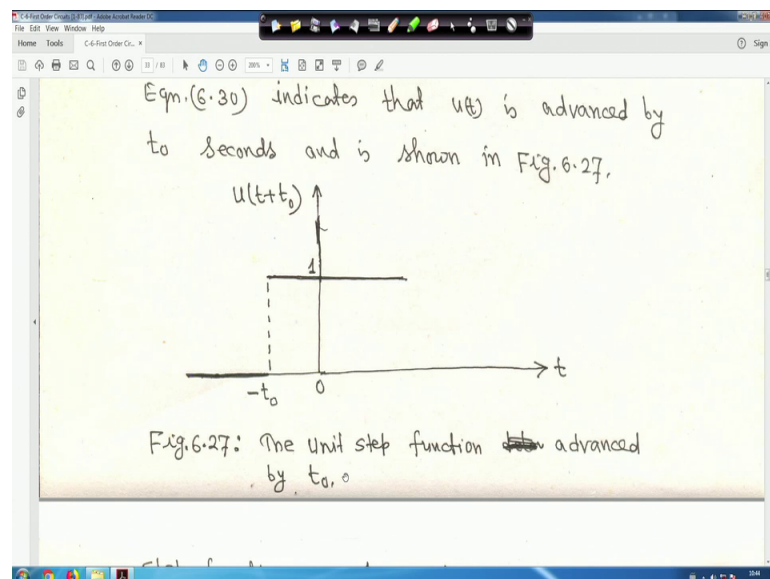 C-6-First Order Circuits [1-83].pdf - Adobe Acrobat Reader DC
File Edit View Window Help
Home Tools C-6-First Order Cir... × Sign
31 / 83 200%
Eqn.(6.30) indicates that u(t) is advanced by
to seconds and is shown in Fig. 6.27.
u(t+t₀)
1
-t₀ 0 t
Fig.6.27: The unit step function advanced
by t₀.
10:44